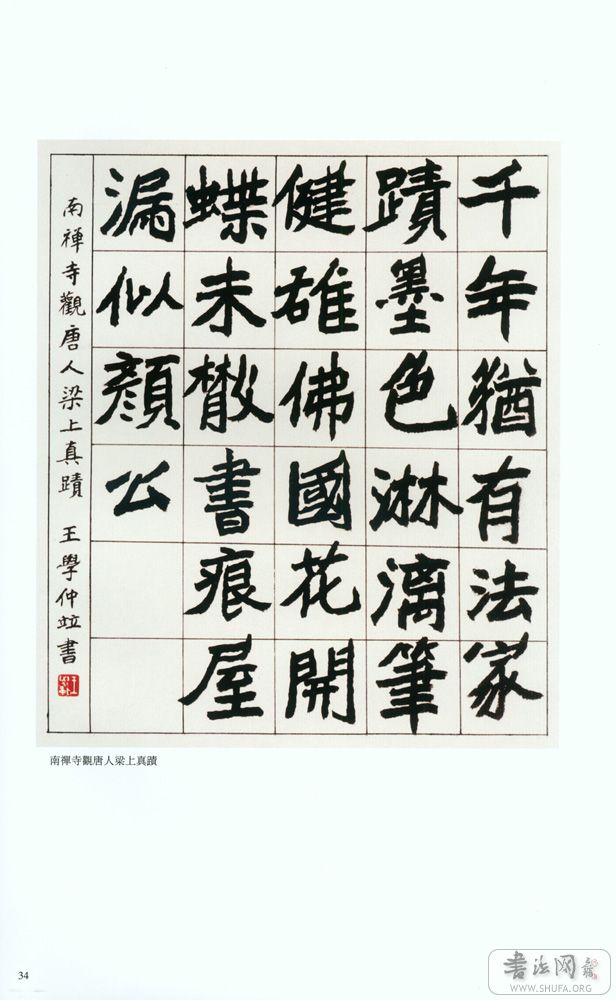 千年猶有法家
蹟墨色淋漓筆
健雄佛國花開
蝶未散書痕屋
漏似顏公
南禪寺觀唐人梁上真蹟 王學仲竝書
南禪寺觀唐人梁上真蹟
34
書法网
WWW.SHUFA.ORG